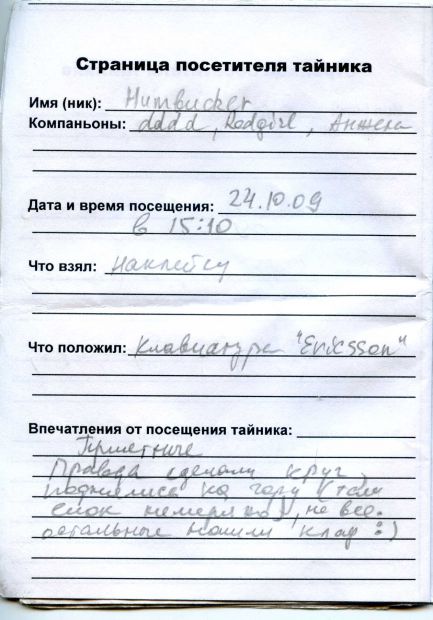 Страница посетителя тайника
Имя (ник): Humbucker
Компаньоны: dddd, Redgirl, Анжела
Дата и время посещения: 24.10.09
в 15:10
Что взял: Наклейку
Что положил: Клавиатура "Ericsson"
Впечатления от посещения тайника:
Приметные
Правда сделали круг,
поднялись на гору (там
ёлок немерено), не все.
остальные нашли клад :)